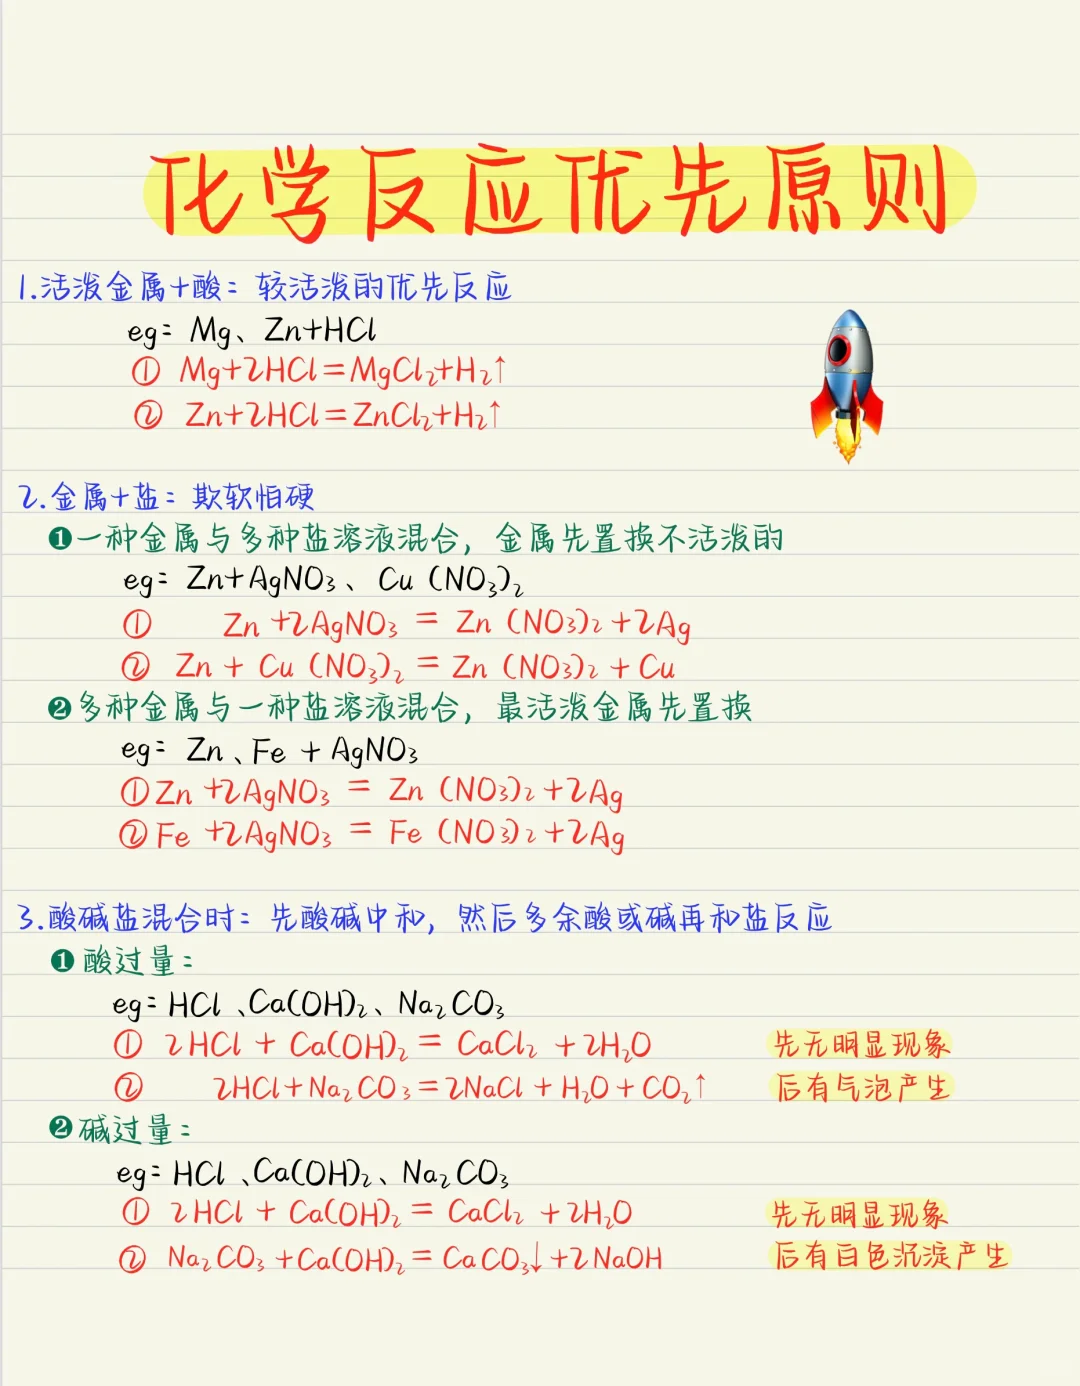 化学反应优先原则
1.活泼金属+酸：较活泼的优先反应
eg: Mg、Zn+HCl
① Mg+2HCl=MgCl₂+H₂↑
② Zn+2HCl=ZnCl₂+H₂↑
2.金属+盐：欺软怕硬
❶一种金属与多种盐溶液混合，金属先置换不活泼的
eg: Zn+AgNO₃、Cu(NO₃)₂
① Zn+2AgNO₃ = Zn(NO₃)₂+2Ag
② Zn + Cu(NO₃)₂ = Zn(NO₃)₂ + Cu
❷多种金属与一种盐溶液混合，最活泼金属先置换
eg: Zn、Fe + AgNO₃
①Zn+2AgNO₃ = Zn(NO₃)₂+2Ag
②Fe+2AgNO₃ = Fe(NO₃)₂+2Ag
3.酸碱盐混合时：先酸碱中和，然后多余酸或碱再和盐反应
❶酸过量：
eg: HCl、Ca(OH)₂、Na₂CO₃
① 2HCl + Ca(OH)₂ = CaCl₂ + 2H₂O 先无明显现象
② 2HCl+Na₂CO₃=2NaCl+H₂O+CO₂↑ 后有气泡产生
❷碱过量：
eg: HCl、Ca(OH)₂、Na₂CO₃
① 2HCl + Ca(OH)₂ = CaCl₂ + 2H₂O 先无明显现象
② Na₂CO₃+Ca(OH)₂=CaCO₃↓+2NaOH 后有白色沉淀产生